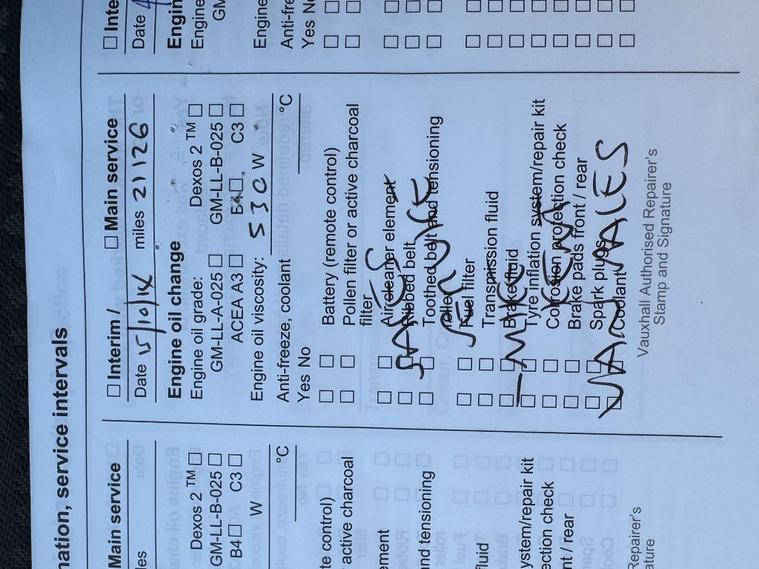 nation, service intervals
Inte
Date
Engin
Engine
GM
Engine
Anti-fre
Yes No
Interim / Main service
Date 15/10/14 miles 21126
Engine oil change
Engine oil grade: Dexos 2 ™
GM-LL-A-025 GM-LL-B-025
ACEA A3 B4 C3
Engine oil viscosity: 530 W
Anti-freeze, coolant °C
Yes No
Battery (remote control)
Pollen filter or active charcoal
filter
Aircleaner element
Ribbed belt
Toothed belt and tensioning
roller
Fuel filter
Transmission fluid
Brake fluid
Tyre inflation system/repair kit
Corrosion protection check
Brake pads front / rear
Spark plugs
Coolant
SERVICE
VAN SALES
Vauxhall Authorised Repairer's
Stamp and Signature
Main service
les
Dexos 2 ™
GM-LL-B-025
B4 C3
W
°C
te control)
active charcoal
ement
nd tensioning
fluid
ystem/repair kit
ection check
nt / rear
Repairer's
ature